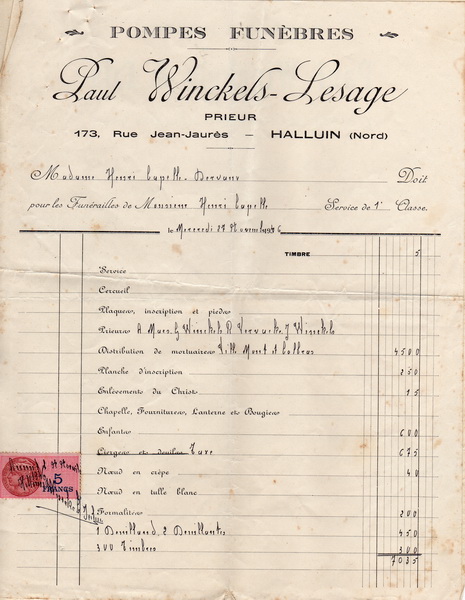 POMPES FUNÈBRES
Paul Winckels-Lesage
PRIEUR
173, Rue Jean-Jaurès - HALLUIN (Nord)
Madame Henri Capelle-Dervaux Doit
pour les Funérailles de Monsieur Henri Capelle Service de 1e Classe.
le Mercredi 27 Novembre 1946
TIMBRE 5
Service
Cercueil
Plaques, inscription et pieds
Prieurs A Mars G Winckels R Vervacke J Winckels
Distribution de mortuaires Ville Mont et Collras 4500
Planche d'inscription 250
Enlèvements du Christ 15
Chapelle, Fournitures, Lanterne et Bougies
Enfants 600
Cierges et deuilus Taxe 675
Nœud en crêpe 40
Nœud en tulle blanc
Formalités 200
1 2 450
300 Timbres 300
7035
5
FRANCS